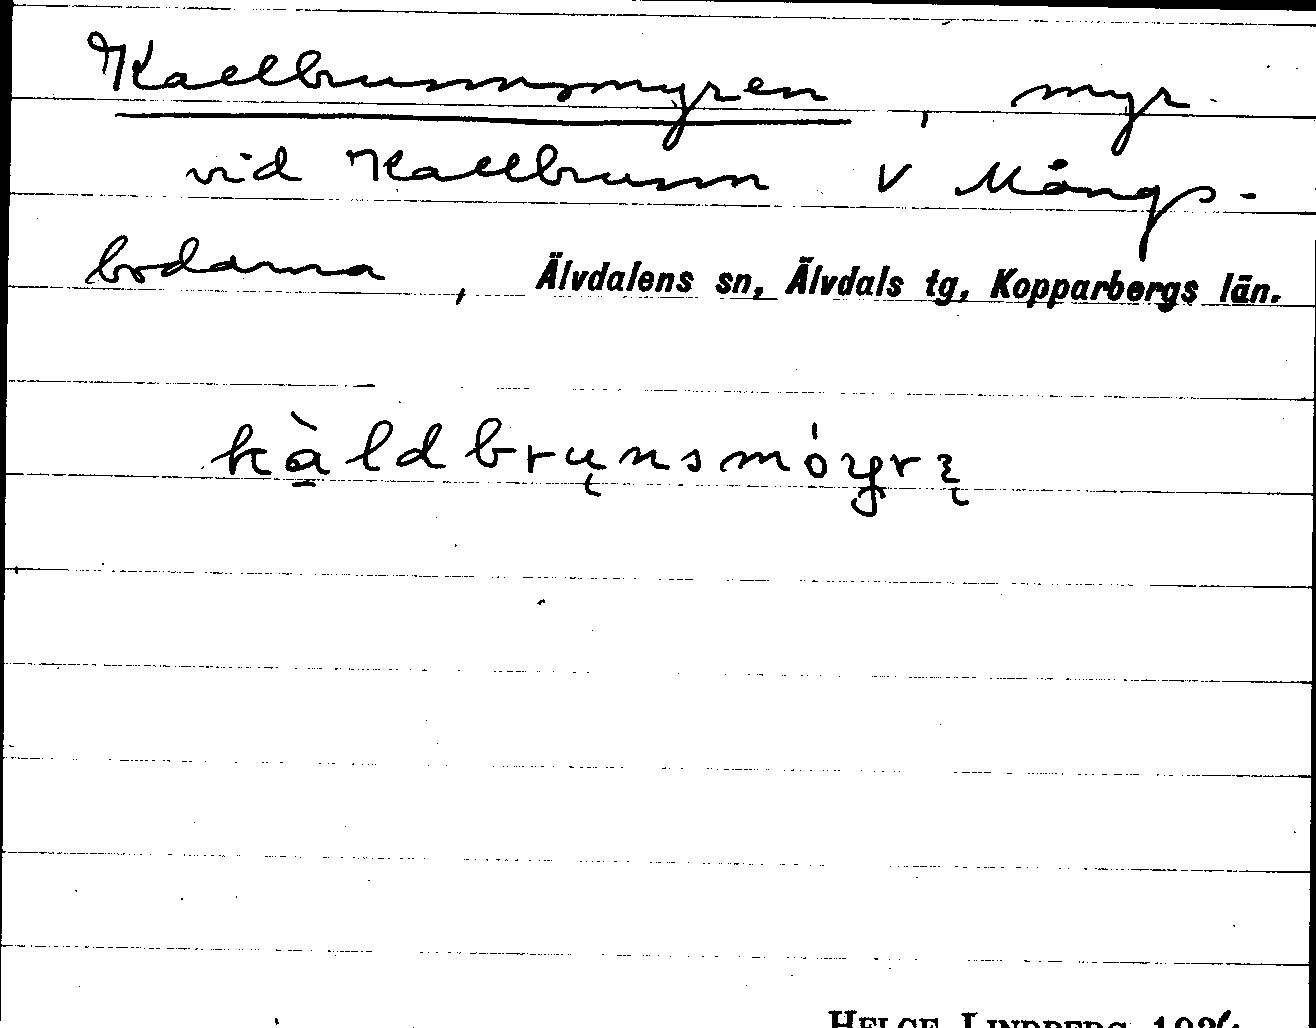 Kallbrunnsmyren, myr
vid Kallbrunn V Mångs-
bodarna, Älvdalens sn, Älvdals tg, Kopparbergs län.
kà̱ldbrųnsmóyrę
HELGE LINDBERG